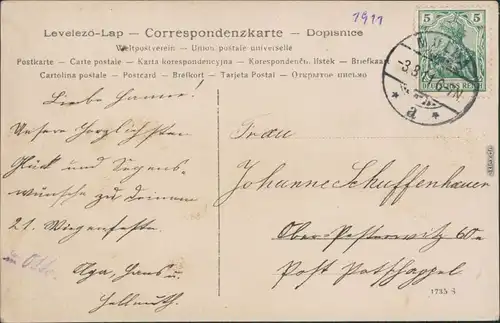 1911
Levelező-Lap – Correspondenzkarte – Dopisnice
Weltpostverein – Union postale universelle
Postkarte – Carte postale – Karta korespondencyjna – Korespondenčni listek – Briefkaart
Cartolina postale – Postcard – Brefkort – Tarjeta Postal – Открытое письмо
5 5
DEUTSCHES REICH
* a *
Liebe Hanne!
Unsere herzlichsten
Glück und Segens-
wünsche zu deinem
21. Wiegenfeste.
Hans u.
Hellmuth.
Frau
Johanne Schuffenhauer
Ober-Pesterwitz 60e
Post Potschappel
1735 3